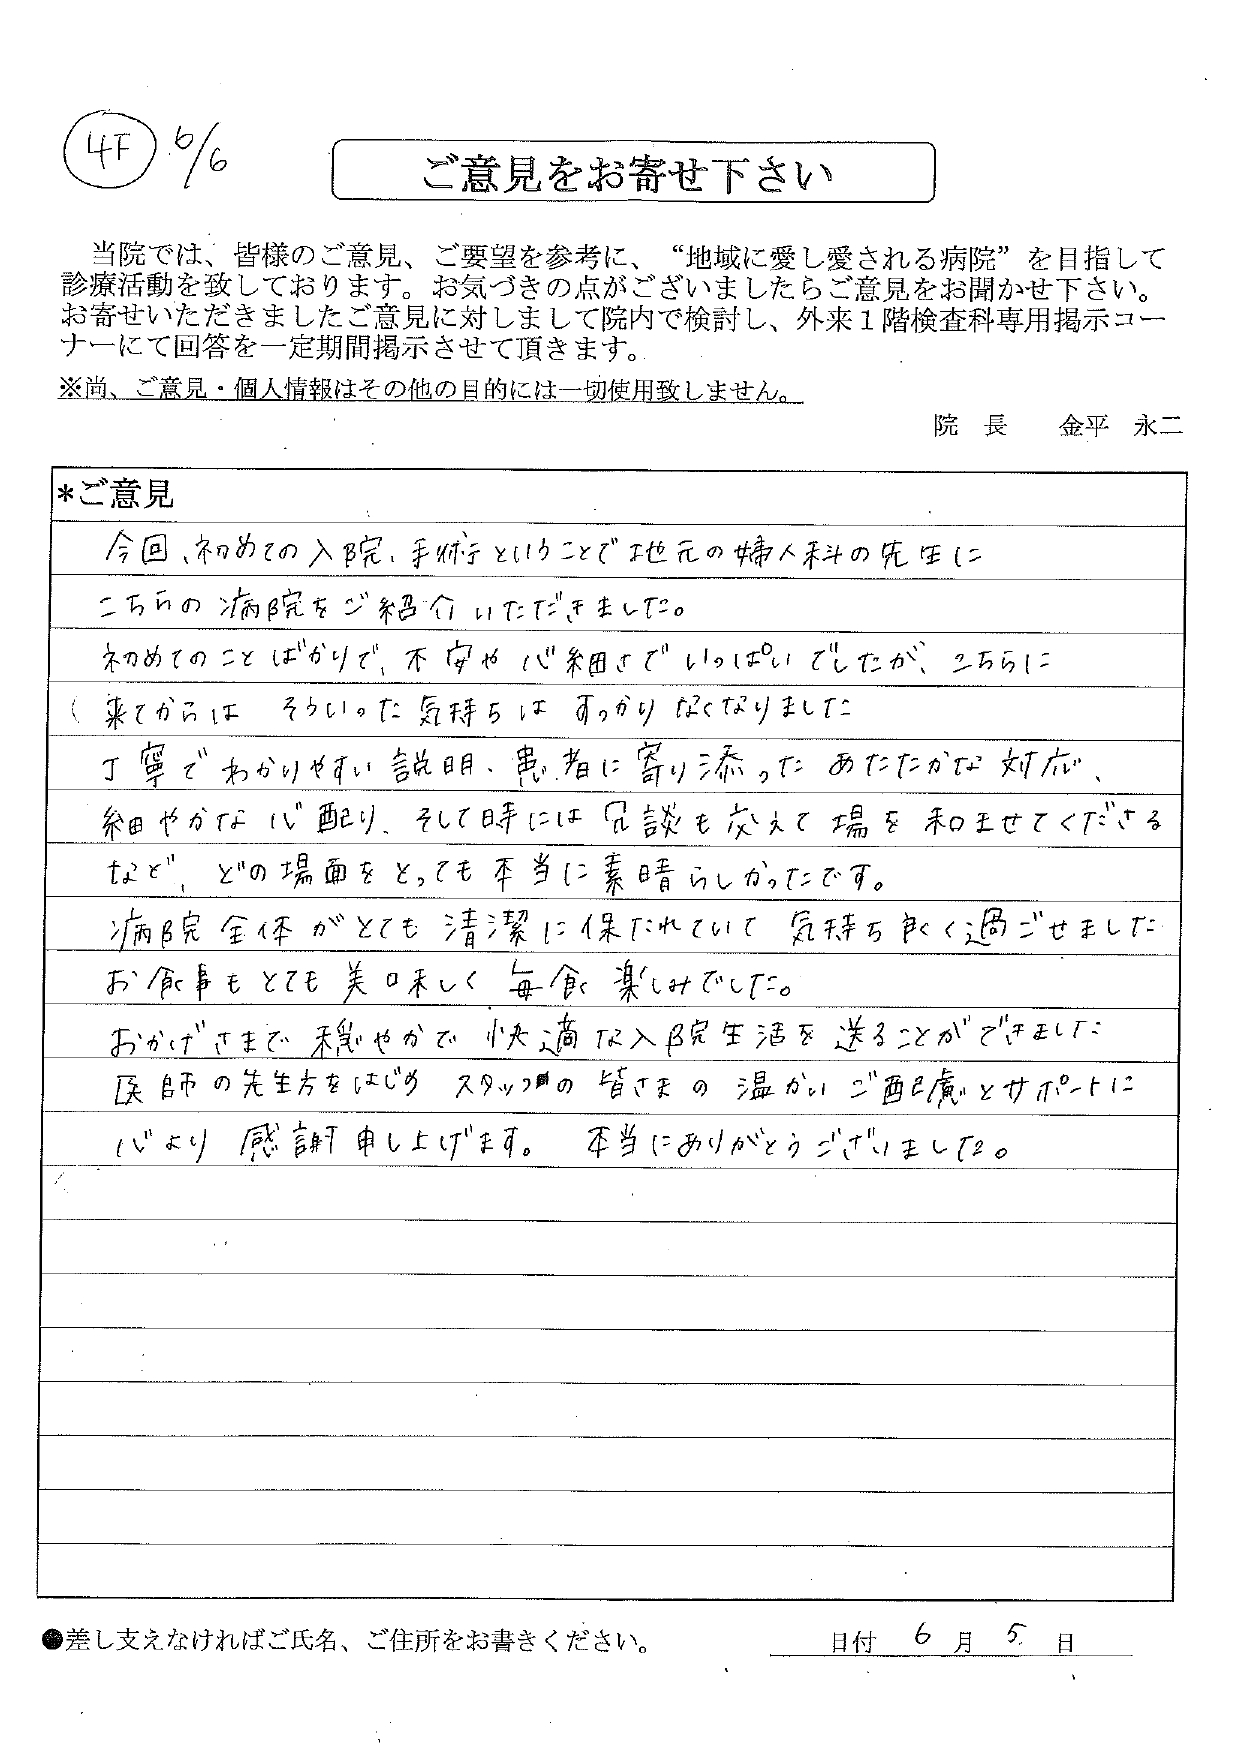 4F 6/6
ご意見をお寄せ下さい
当院では、皆様のご意見、ご要望を参考に、“地域に愛し愛される病院”を目指して
診療活動を致しております。お気づきの点がございましたらご意見をお聞かせ下さい。
お寄せいただきましたご意見に対しまして院内で検討し、外来1階検査科専用掲示コー
ナーにて回答を一定期間掲示させて頂きます。
※尚、ご意見・個人情報はその他の目的には一切使用致しません。
院 長 金平 永二
*ご意見
今回、初めての入院、手術ということで地元の婦人科の先生に
こちらの病院をご紹介いただきました。
初めてのことばかりで、不安や心細さでいっぱいでしたが、こちらに
来てからは そういった気持ちは すっかりなくなりました
丁寧でわかりやすい説明、患者に寄り添った あたたかな対応、
細やかな心配り、そして時には冗談も交えて場を和ませてくださる
など、どの場面をとっても本当に素晴らしかったです。
病院全体がとても清潔に保たれていて 気持ち良く過ごせました
お食事もとても美味しく 毎食楽しみでした。
おかげさまで 穏やかで 快適な入院生活を送ることができました
医師の先生方をはじめ スタッフの皆さまの温かいご配慮とサポートに
心より感謝申し上げます。 本当にありがとうございました。
●差し支えなければご氏名、ご住所をお書きください。 日付 6 月 5 日